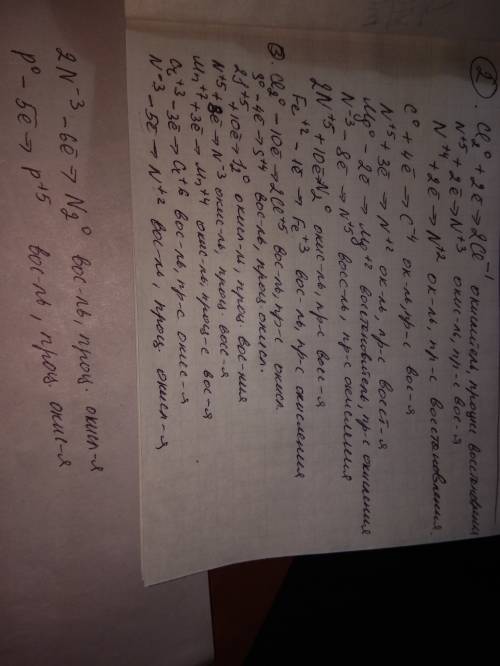 ② . Cl₂⁰ + 2ē → 2Cl⁻¹ окислитель, процес
N⁺⁵ + 2ē → N⁺³ окис-ль, пр-с вос-я
N⁺⁴ + 2ē → N⁺² ок-ль, пр-с восстановления.
C⁰ + 4ē → C⁻⁴ ок-ль, пр-с вос-я
N⁺⁵ + 3ē → N⁺² ок-ль, пр-с восст-я
Mg⁰ - 2ē → Mg⁺² востоновитель, пр-с окисления
N⁻³ - 8ē → N⁺⁵ восс-ль, пр-с окисления
2N⁺⁵ + 10ē N₂⁰ окис-ль, пр-с восс-я
Fe⁺² - 1ē → Fe⁺³ вос-ль, пр-с окисления
③. Cl₂⁰ - 10ē → 2Cl⁺⁵ вос-ль, пр-с окисл.
S⁰ - 4ē → S⁺⁴ вос-ль, проц окисл.
2J⁺⁵ + 10ē → J₂⁰ окисл-ль, проц. вос-ния
N⁺⁵ + 8ē → N⁻³ окис-ль, проц. вос-я
Mn⁺⁷ + 3ē → Mn⁺⁴ окис-ль, проц-с вос-я
Cr⁺³ - 3ē → Cr⁺⁶ вос-ль, пр-с окис-я
N⁻³ - 5ē → N⁺² вос-ль, проц. окисл-я
2N⁻³ - 6ē → N₂⁰ вос-ль, проц. окисл-я
P⁰ - 5ē → P⁺⁵ вос-ль, проц. окис-я